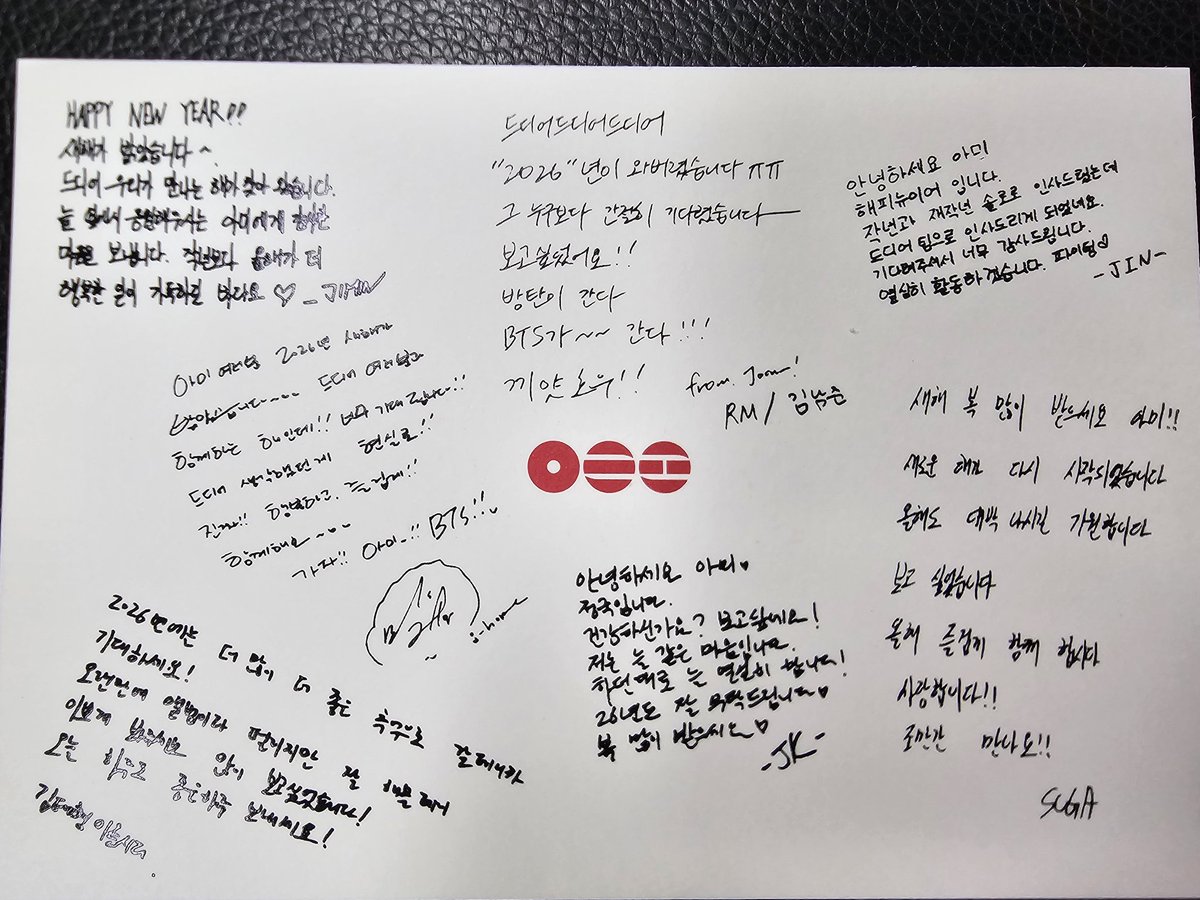 HAPPY NEW YEAR!!
새해가 밝았습니다~
드디어 우리가 만나는 해가 찾아 왔습니다.
늘 옆에서 응원해주시는 아미에게 감사한
마음을 보냅니다. 작년보다 올해가 더
행복한 일이 가득하길 바라요 ♡ - JIMIN
드디어드디어드디어
"2026"년이 와버렸습니다 ㅠㅠ
그 누구보다 간절히 기다렸습니다
보고싶었어요!!
방탄이 간다
BTS가~~ 간다!!!
끼얏호우!!
from. Joon!
RM / 김남준
안녕하세요 아미
해피뉴이어 입니다.
작년과 재작년 솔로로 인사드렸는데
드디어 팀으로 인사드리게 되었네요.
기다려주셔서 너무 감사드립니다.
열심히 활동하겠습니다. 파이팅♡
-JIN-
아미 여러분 2026년 새해가
밝았습니다~~~ 드디어 여러분과
함께하는 해인데!! 너무 기대 됩니다!!
드디어 생각했던게 현실로!!
진짜!! 행복하고, 즐겁게!!
함께해요~~~
가자!! 아미~!! BTS!!
j-hope
새해 복 많이 받으세요 아미!!
새로운 해가 다시 시작되었습니다
올해도 대박 나시길 기원합니다
보고 싶었습니다
올해 즐겁게 함께 합시다
사랑합니다!!
조만간 만나요!!
SUGA
2026년에는 더 많이 더 좋은 추억으로 갈테니까
기대하세요!
오랜만에 앨범이라 떨리지만 잘 해볼 테니
이쁘게 봐주시고 많이 보고싶었습니다!
오늘 하루도 좋은하루 보내세요!
김태형 이였습니다.
안녕하세요 아미♥
정국입니다.
건강하신가요? 보고싶네요!
저는 늘 같은 마음입니다.
하던대로 늘 열심히 합니다!
26년도 잘 부탁드립니다♥
복 많이 받으세요♡
-JK-